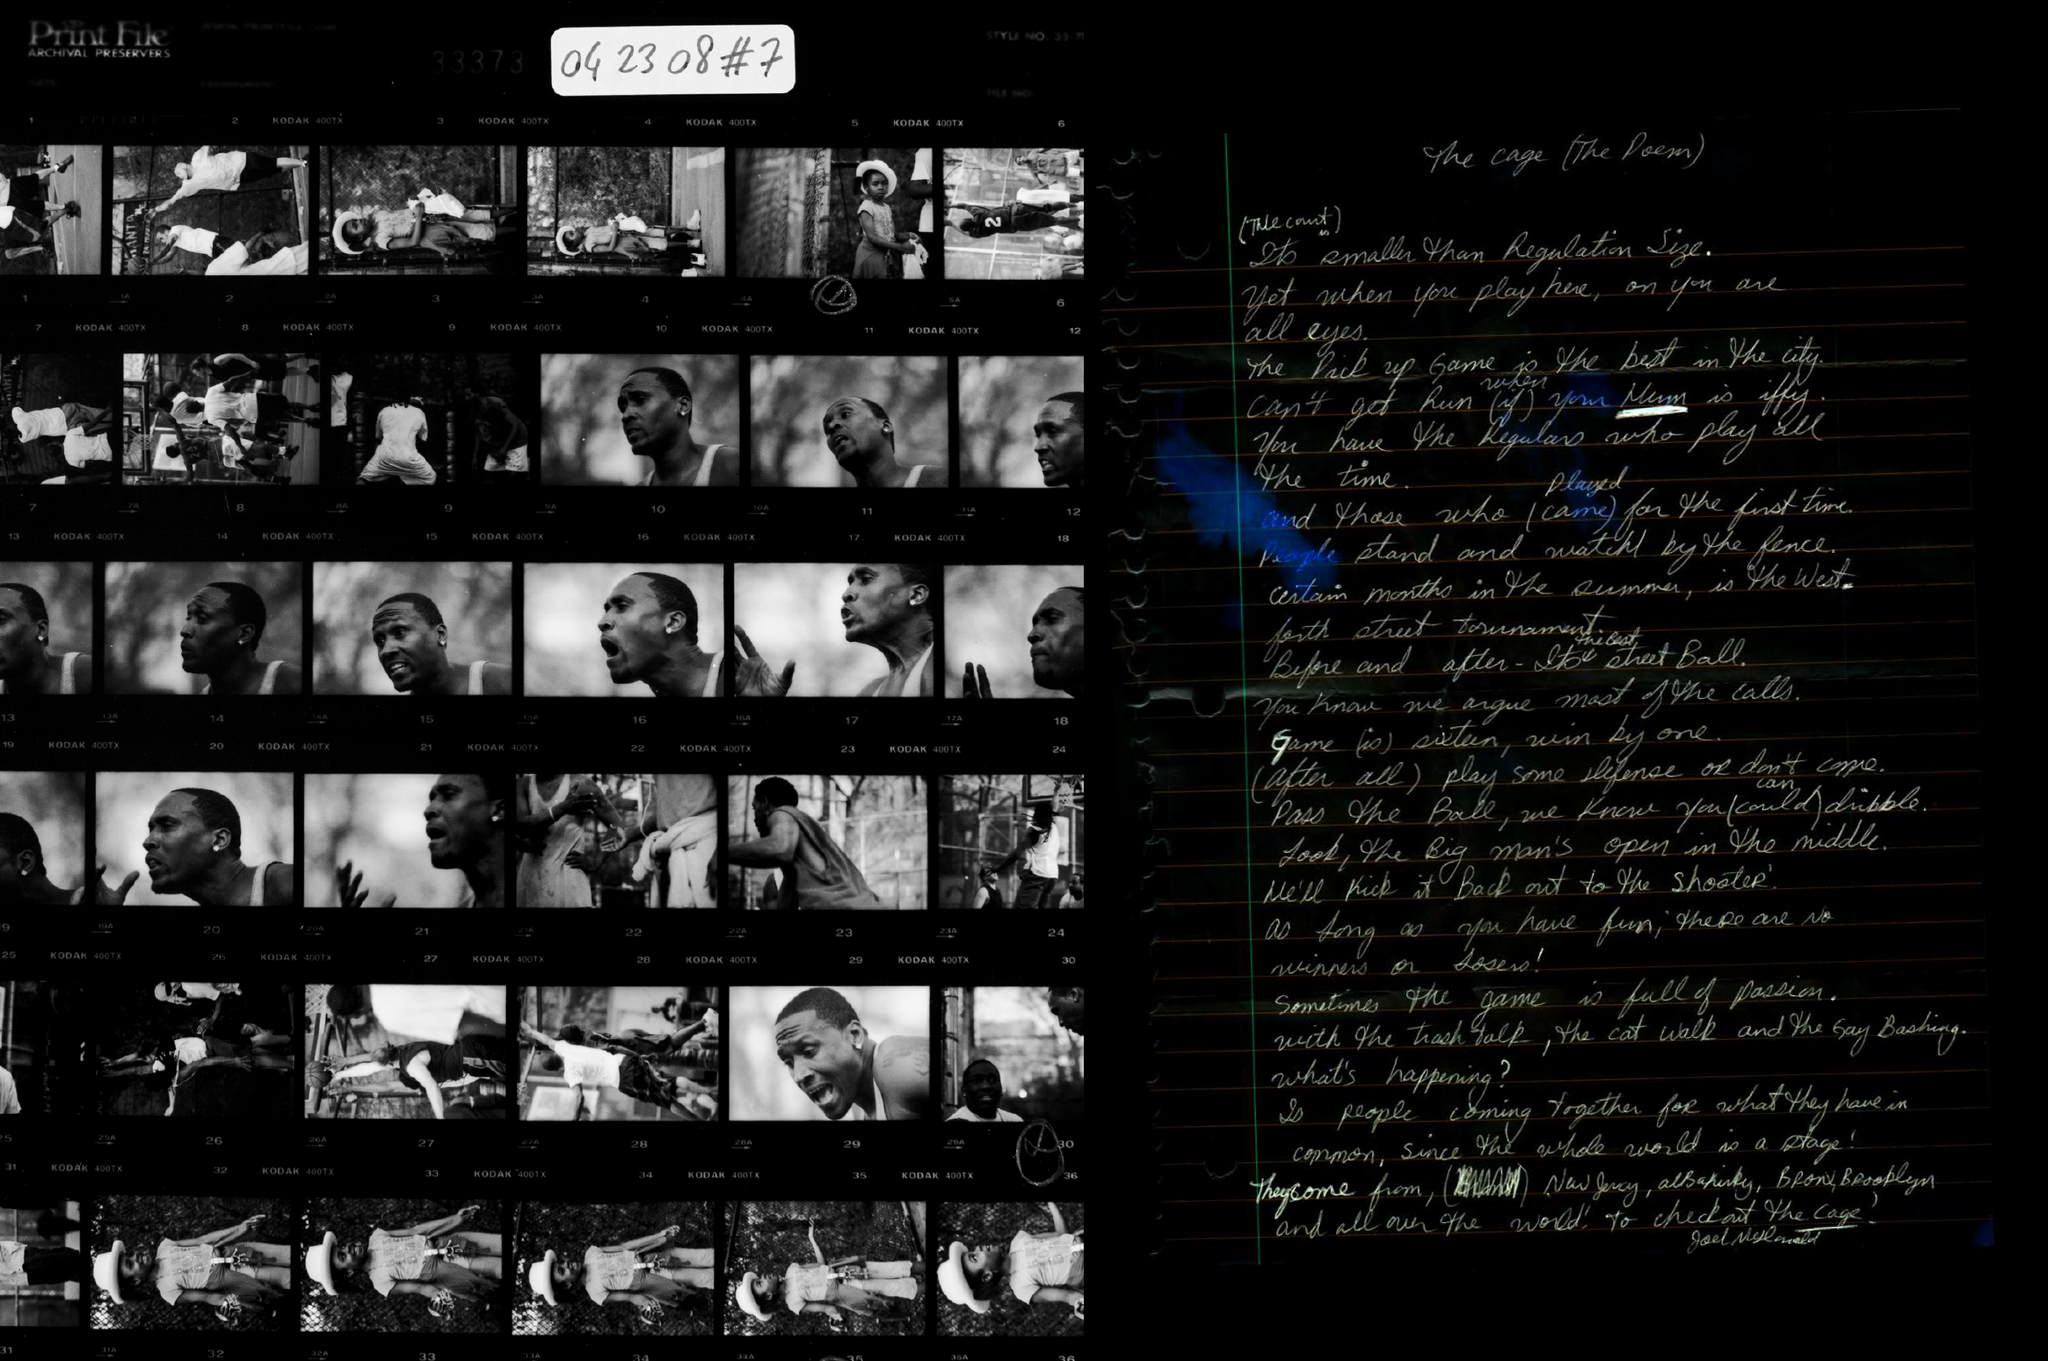 Print File
ARCHIVAL PRESERVERS
33373
04 23 08 #7
STYLE NO. 35
FILE NO.
1 2 KODAK 400TX 3 KODAK 400TX 4 KODAK 400TX 5 KODAK 400TX 6
1 1A 2 2A 3 3A 4 4A 5A 6
7 KODAK 400TX 8 KODAK 400TX 9 KODAK 400TX 10 KODAK 400TX 11 KODAK 400TX 12
7 7A 8 8A 9 9A 10 10A 11 11A 12
13 KODAK 400TX 14 KODAK 400TX 15 KODAK 400TX 16 KODAK 400TX 17 KODAK 400TX 18
13 13A 14 14A 15 15A 16 16A 17 17A 18
19 KODAK 400TX 20 KODAK 400TX 21 KODAK 400TX 22 KODAK 400TX 23 KODAK 400TX 24
19 19A 20 20A 21 21A 22 22A 23 23A 24
25 KODAK 400TX 26 KODAK 400TX 27 KODAK 400TX 28 KODAK 400TX 29 KODAK 400TX 30
25 25A 26 26A 27 27A 28 28A 29 29A 30
31 KODAK 400TX 32 KODAK 400TX 33 KODAK 400TX 34 KODAK 400TX 35 KODAK 400TX 36
31 31A 32 32A 33 33A 34 34A 35 35A 36
The cage (The Poem)
(The court is)
Its smaller than Regulation Size.
Yet when you play here, on you are
all eyes.
The Pick up Game is the best in the city.
when
can't get Run (if) your is iffy.
You have the Regulars who play all
the time.
played
and those who (came) for the first time.
People stand and watch by the fence.
certain months in the summer, is the West
forth street tournament.
the best
Before and after - Its street Ball.
You Know we argue most of the calls.
Game (is) sixteen, win by one.
(after all) play some defense or don't come.
can
Pass the Ball, we Know you (could) dribble.
Look, the Big man's open in the middle.
He'll Kick it Back out to the Shooter!
as long as you have fun; there are no
winners or Losers!
Sometimes the game is full of passion.
with the trash talk, the cat walk and the Gay Bashing.
what's happening?
Is people coming together for what they have in
common, since the whole world is a stage!
They come from, New Jersy, Bronx, Brooklyn
and all over the world! to check out the cage!
Joel McDonald